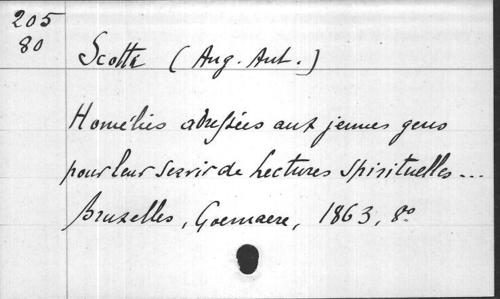 205
80
Scotti (Aug. Ant.)
Homélies adressées aux jeunes gens
pour leur servir de lectures spirituelles ...
Bruxelles, Goemaere, 1863, 8º